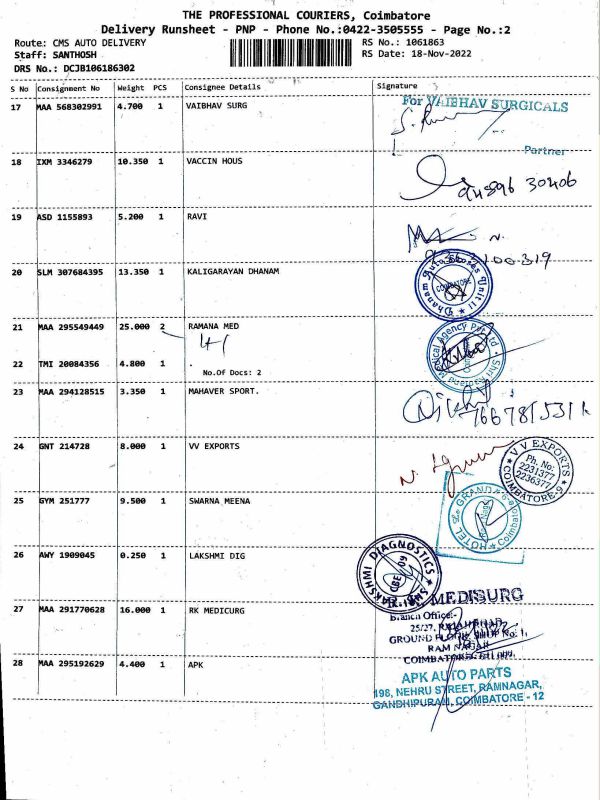 THE PROFESSIONAL COURIERS, Coimbatore
Delivery Runsheet - PNP - Phone No.:0422-3505555 - Page No.:2
Route: CMS AUTO DELIVERY
RS No.: 1061863
Staff: SANTHOSH
RS Date: 18-Nov-2022
DRS No.: DCJB106186302
S No Consignment No Weight PCS Consignee Details Signature
17 MAA 568302991 4.700 1 VAIBHAV SURG
For VAIBHAV SURGICALS
Partner
18 IXM 3346279 10.350 1 VACCIN HOUS
30406
19 ASD 1155893 5.200 1 RAVI
20 SLM 307684395 13.350 1 KALIGARAYAN DHANAM
COIMBATORE
21 MAA 295549449 25.000 2 RAMANA MED
22 TMI 20084356 4.800 1 .
No.Of Docs: 2
23 MAA 294128515 3.350 1 MAHAVER SPORT.
24 GNT 214728 8.000 1 VV EXPORTS
V V EXPORTS
Ph. No:
2231377
2236377
COIMBATORE-9
25 GYM 251777 9.500 1 SWARNA MEENA
HOTEL Le GRAND
Coimbatore
26 AWY 1909045 0.250 1 LAKSHMI DIG
DIAGNOSTICS
27 MAA 291770628 16.000 1 RK MEDICURG
MEDISURG
Branch Office:-
25/27,
GROUND FLOOR, SHOP No: 1,
RAM NAGAR
28 MAA 295192629 4.400 1 APK
APK AUTO PARTS
198, NEHRU STREET, RAMNAGAR,
GANDHIPURAM, COIMBATORE - 12